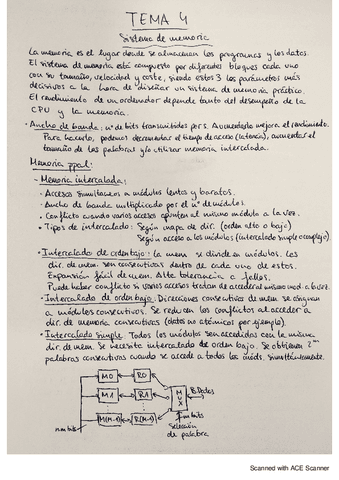 TEMA 4
Sistema de memoria
La memoria es el lugar donde se almacenan los programas y los datos.
El sistema de memoria está compuesto por diferentes bloques cada uno
con su tamaño, velocidad y coste, siendo estos 3 los parámetros más
decisivos a la hora de diseñar un sistema de memoria práctico.
El rendimiento de un ordenador depende tanto del desempeño de la
CPU y la memoria.
· Ancho de banda: nº de bits transmitidos por s. Aumentarlo mejora el rendimiento.
Para hacerlo, podemos decrementar el tiempo de acceso (latencia), aumentar el
tamaño de las palabras y/o utilizar memoria intercalada.
Memoria ppal:
- Memoria intercalada:
· Accesos simultáneos a módulos lentos y baratos.
· Ancho de banda multiplicado por el nº de módulos.
· Conflicto cuando varios accesos apunten al mismo módulo a la vez.
· Tipos de intercalado: Según mapa de dir. (orden alto o bajo)
Según acceso a los módulos (intercalado simple o complejo)
· Intercalado de orden bajo: la mem se divide en módulos. Las
dir. de mem. son consecutivas dentro de cada uno de estos.
Expansión fácil de mem. Alta tolerancia a fallos.
Puede haber conflicto si varios accesos tratan de acceder al mismo mod. a la vez.
· Intercalado de orden bajo: Direcciones consecutivas de mem se asignan
a módulos consecutivos. Se reducen los conflictos al acceder a
dir. de memoria consecutivas (datos no atómicos por ejemplo).
· Intercalado simple: Todos los módulos son accedidos con la misma
dir. de mem. Se necesita intercalado de orden bajo. Se obtienen 2ᵐ
palabras consecutivas cuando se accede a todos los móds. simultáneamente.
M0 R0
M1 R1
M(M-1) R(M-1)
MUX
B. Datos
m bits
Selección
de palabra
Scanned with ACE Scanner